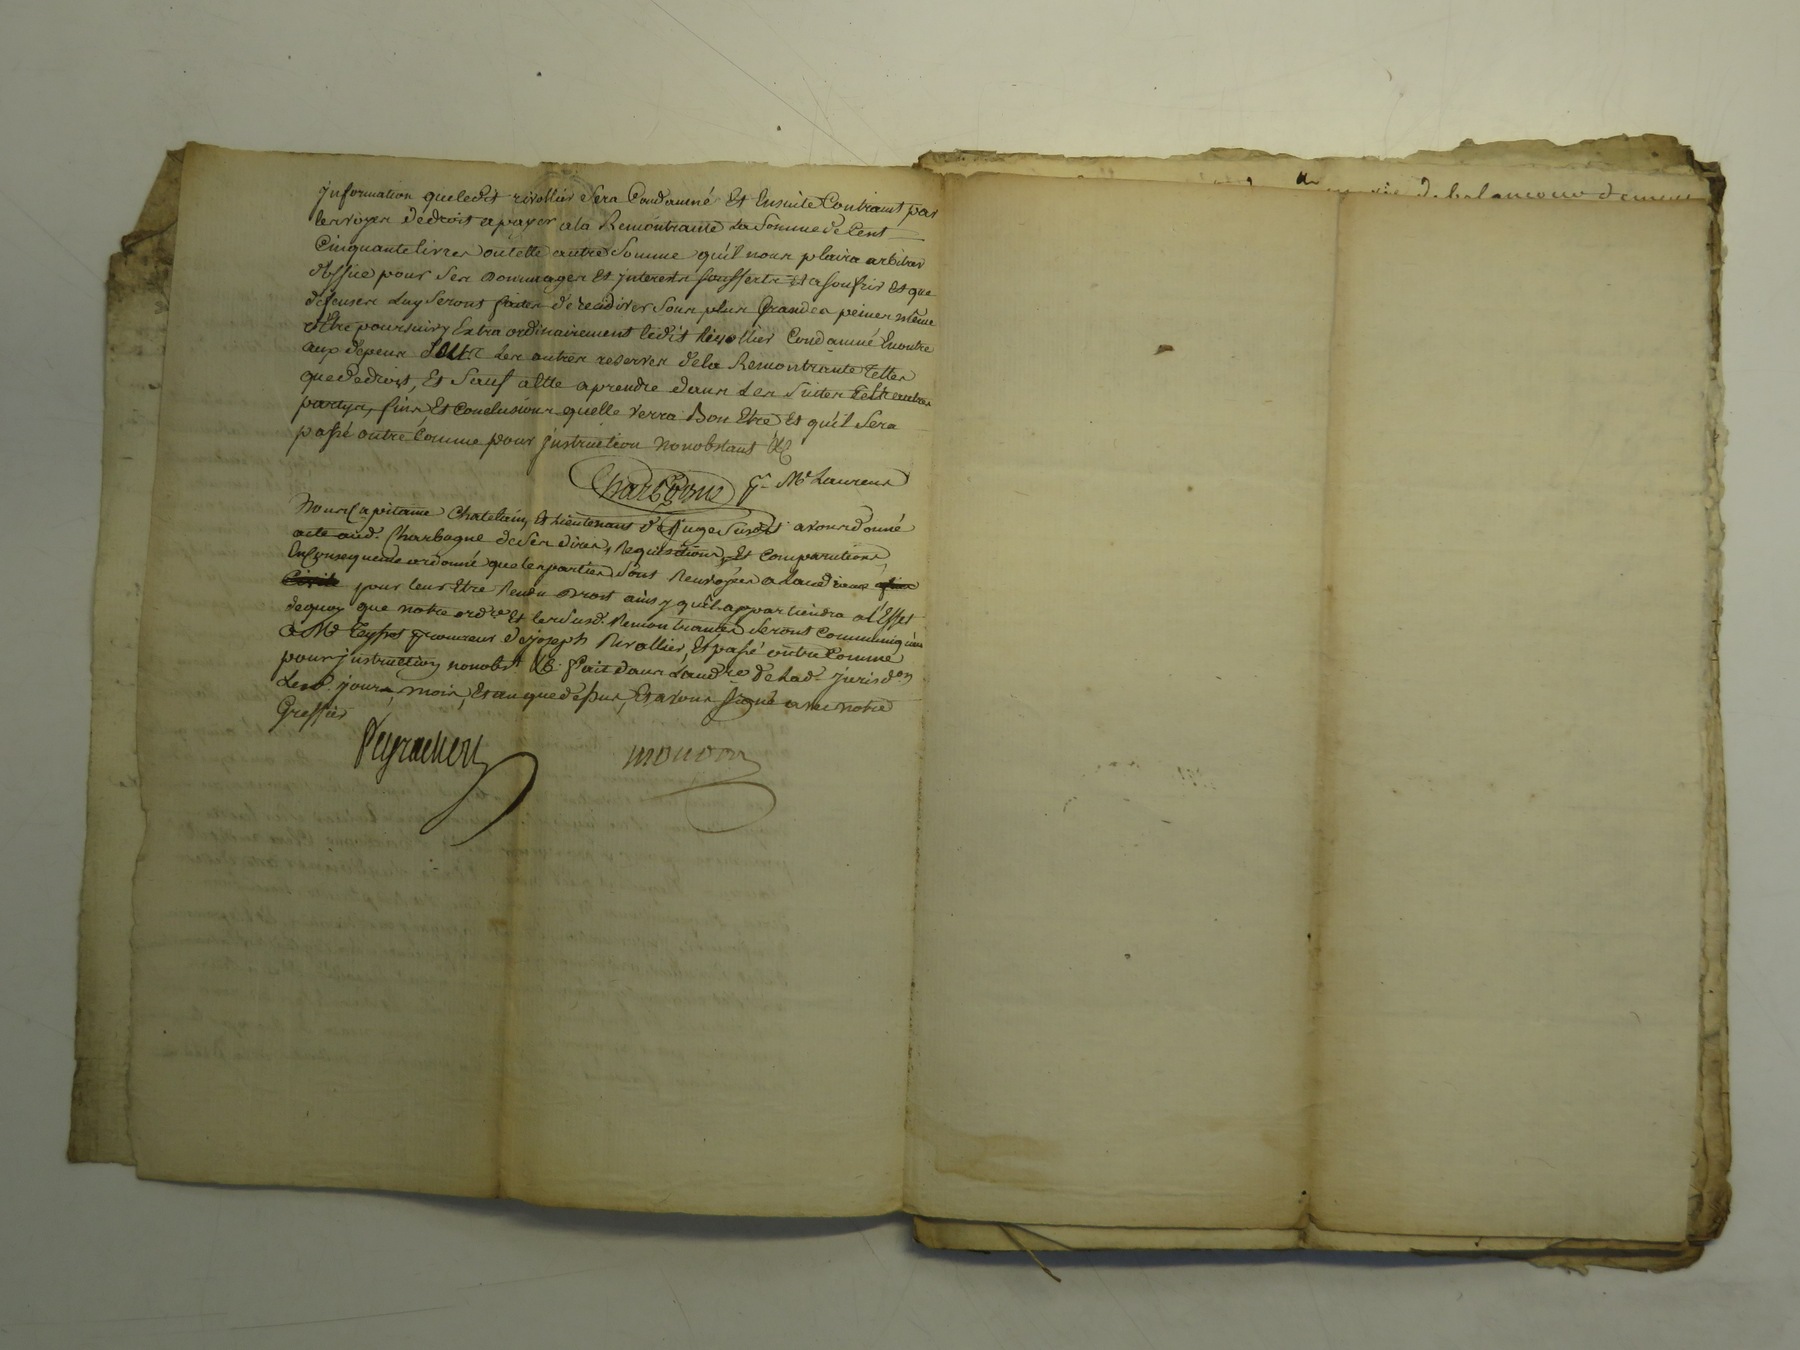 information queledit rivollier sera Condamné Et Ensuite Contraint par
lesvoyes dedroit apayer ala Remontrante la Somme de Cent
Cinquante livres outelle autre somme quil nous plaira arbitrer
d'office pour ses Dommages Et interests soufferts Et asoufrir Et que
défenses luy seront faites derecidiver sous plus Grandes peines même
d'Etre poursuivy Extraordinairement ledit Rivollier Condamné Enoutre
aux depens sauf les autres reserves dela Remontrante telles
quedédroit, Et Sauf aElle aprendre dans les suites telle autres
partys, fins Et Conclusions quelle verra Bon Etre Et qu'il sera
passé outre Comme pour instruction nonobstant &c
Charbogne pr Me Laurens
Nous Capitaine Chatelain, Et Lieutenant de Juge susdit avons donné
acte aud. Charbogne de ses dires, Requisitions, Et Comparutions,
Enconsequence ordonné que lesparties sont Renvoyées alaudience
pour leur Etre Rendu Droit ainsy quil appartiendra a l'Effet
dequoy que notre ordre Et lesusd. Remontrances seront Communiquées
a Me Teyssot procureur dejoseph Rivallier, Et passé outre Comme
pour instruction nonobst &c. fait dans Laudre de lad. jurisdon
Lesd. jours, mois, Et an que dessus, Et avons signé avec notre
Greffier
Peyrachen mondon